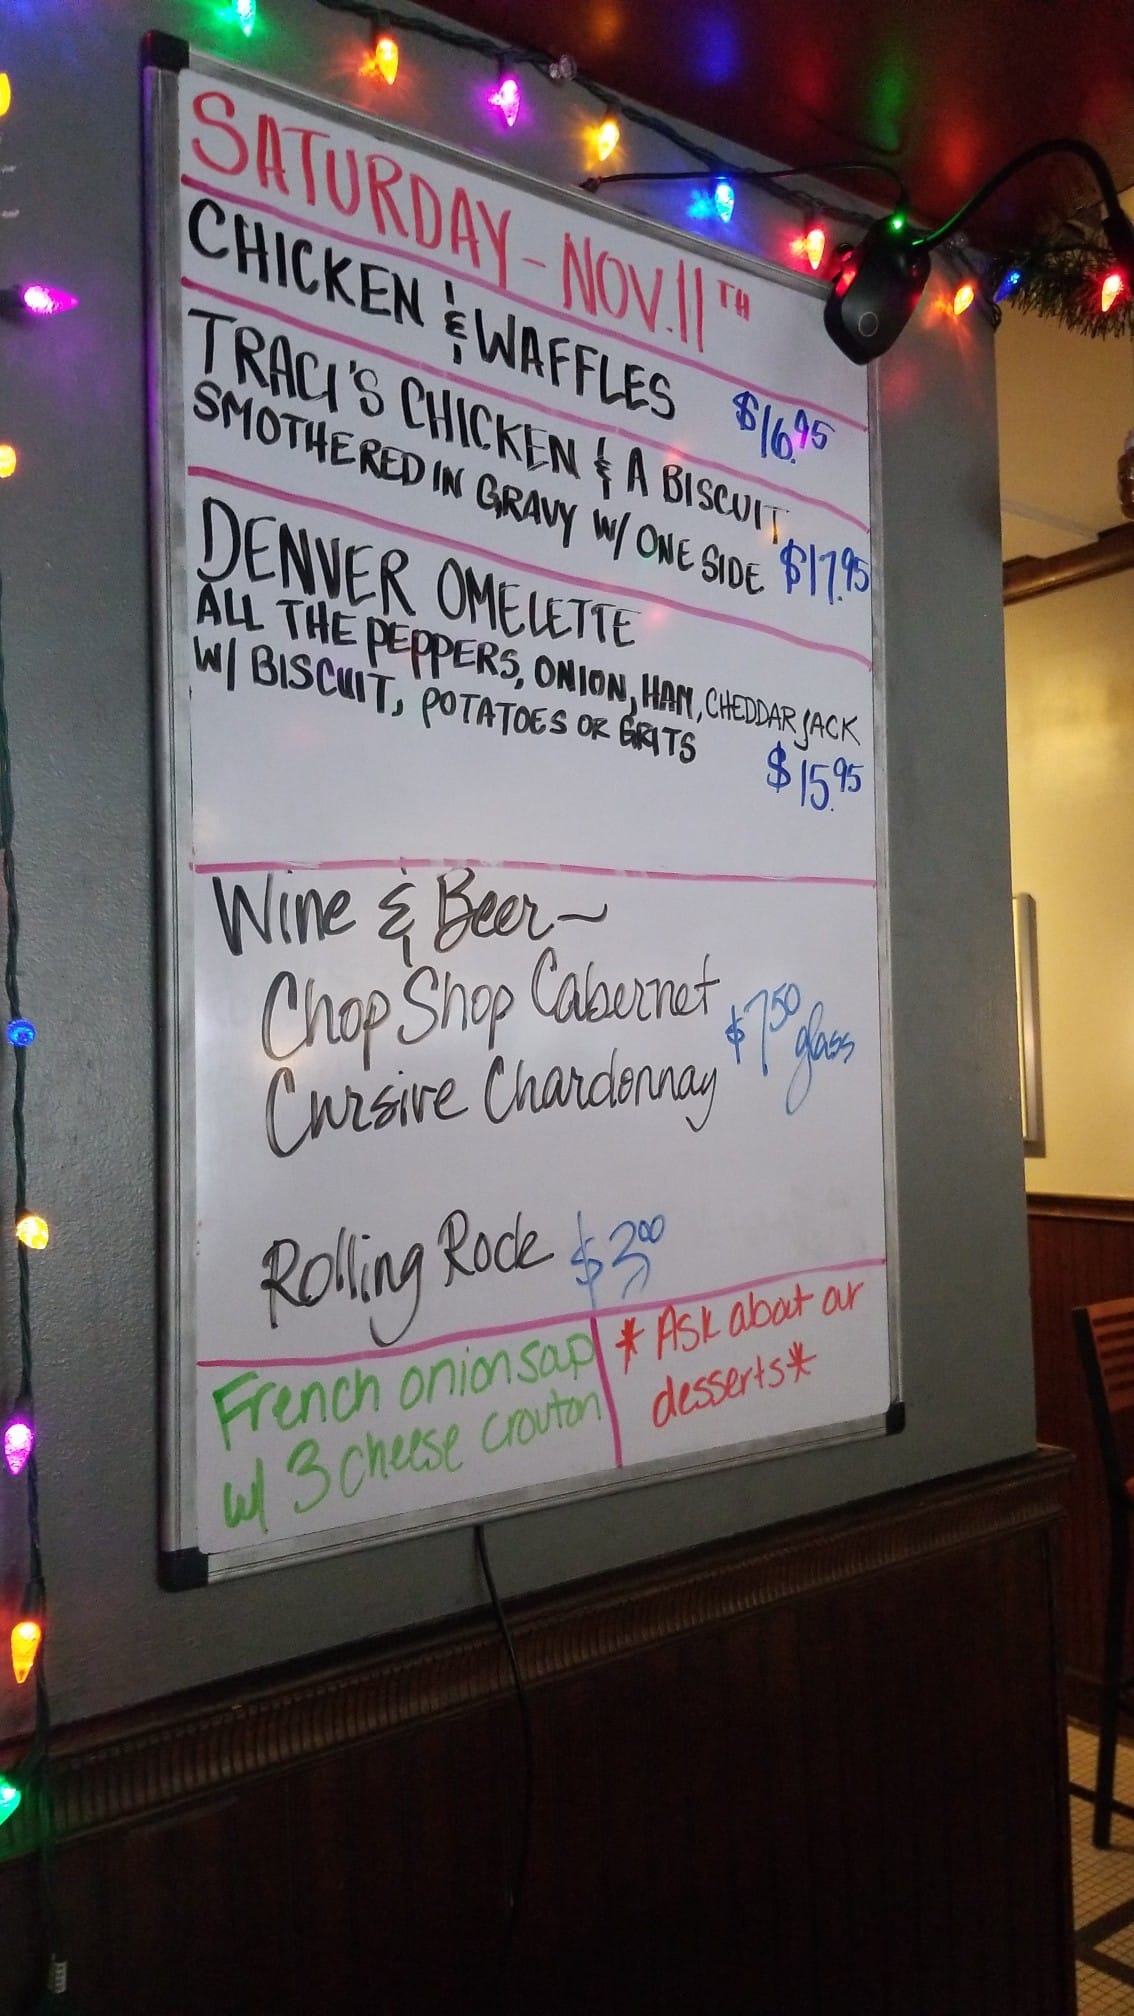 SATURDAY - NOV. 11TH
CHICKEN & WAFFLES $16.95
TRACI'S CHICKEN & A BISCUIT
SMOTHERED IN GRAVY W/ ONE SIDE $17.95
DENVER OMELETTE
ALL THE PEPPERS, ONION, HAM, CHEDDAR JACK
W/ BISCUIT, POTATOES OR GRITS
$15.95
Wine & Beer~
Chop Shop Cabernet
$7.50 glass
Cursive Chardonnay
Rolling Rock $3.00
French onion soup
w/ 3 cheese crouton
* Ask about our
desserts *